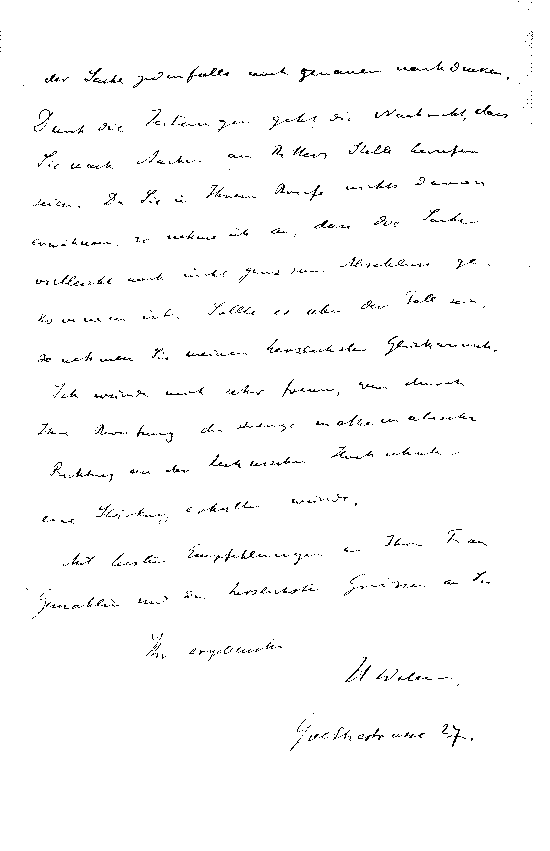 der Sache jedenfalls noch genauer nachdenken.
Durch die Zeitungen geht die Nachricht, dass
Sie nach Aachen an Ritters Stelle berufen
seien. Da Sie in Ihrem Briefe nichts davon
erwähnen, so nehme ich an, dass die Sache
vielleicht noch nicht ganz zum Abschluss ge-
kommen ist. Sollte es aber der Fall sein,
so nehmen Sie meinen herzlichsten Glückwunsch.
Ich würde mich sehr freuen, wenn durch
Ihre Berufung die strenge mathematische
Richtung an der technischen Hochschule
eine Stärkung erhalten würde.
Mit besten Empfehlungen an Ihre Frau
Gemahlin und den herzlichsten Grüssen an Sie
Ihr ergebenster
H Weber.
Goethestrasse 27.